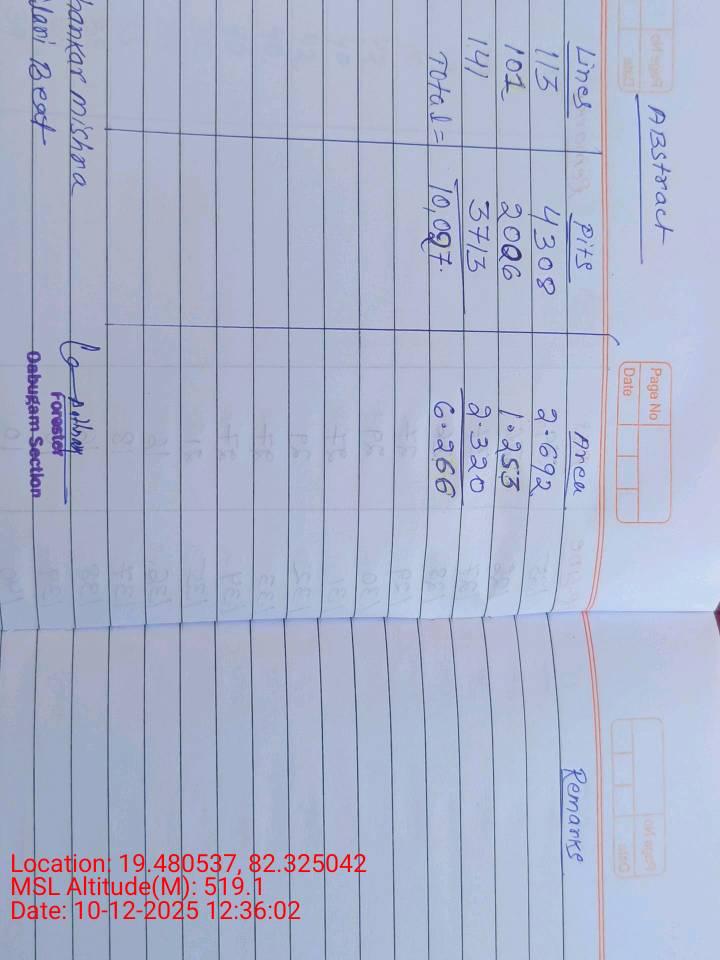 Page No
Date
ABStract
Lines Pits Area Remarks
113 4308 2.692
101 2006 1.253
141 3713 2.320
Total = 10,027. 6.266
hankar mishra
Beat
Forester
Dabugam Section
Location: 19.480537, 82.325042
MSL Altitude(M): 519.1
Date: 10-12-2025 12:36:02